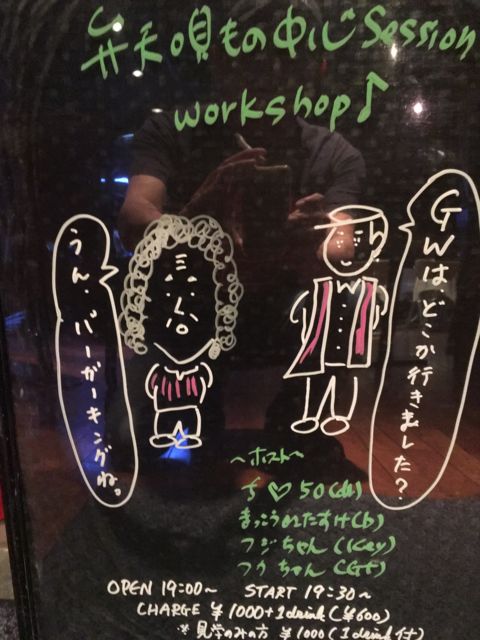 弁天唄もの中心Session
workshop♪
GWはどこか行きました?
うん、バーガーキングね。
〜ホスト〜
ち♡50(ds)
まっこうのたすけ(b)
フジちゃん(Key)
フケちゃん(Gt)
OPEN 19:00〜 START 19:30〜
CHARGE ¥1000+1drink(¥600)
※見学のみの方 ¥1000(1drink付)